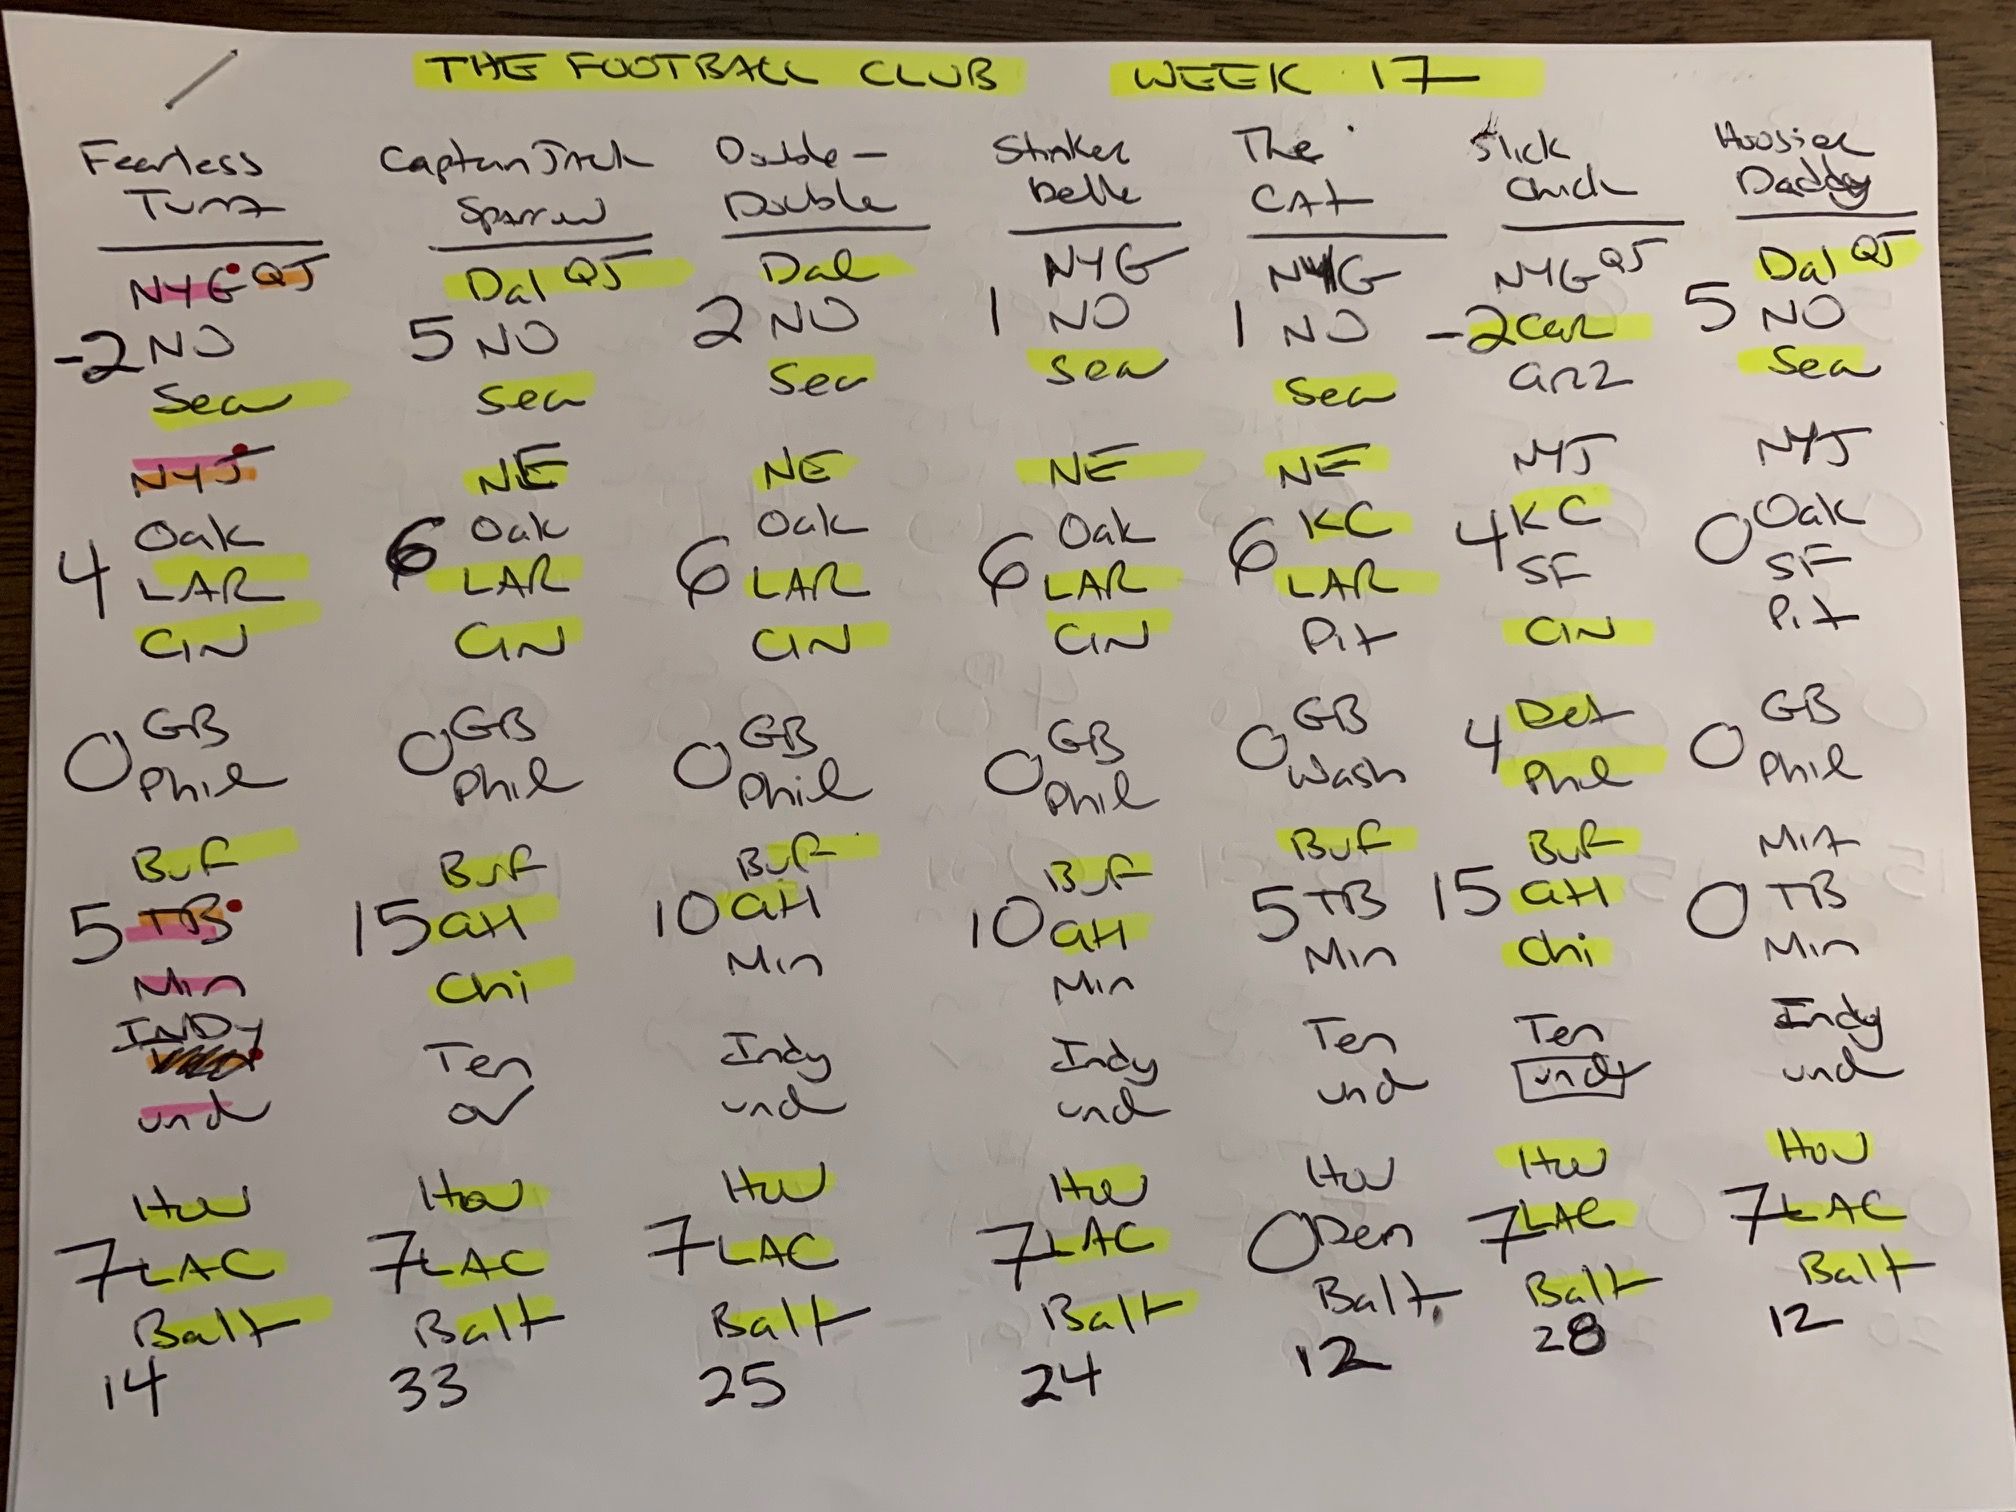 THE FOOTBALL CLUB WEEK 17
Fearless
Captain Jack Double- Stinker The Slick Hoosier
Sparrow Double Belle CAt Chick Daddy
NYG QJ Dal QJ Dal NYG NYG NYG QJ Dal QJ
-2 NO 5 NO 2 NO 1 NO 1 NO -2 Car 5 NO
Sea Sea Sea Sea Sea arz Sea
NYJ NE NE NE NE NYJ NYJ
Oak Oak Oak Oak KC KC Oak
4 LAR 6 LAR 6 LAR 6 LAR 6 LAR 4 SF 0 SF
CIN CIN CIN CIN Pit CIN Pit
GB GB GB GB GB Det GB
0 Phil 0 Phil 0 Phil 0 Phil 0 Wash 4 Phil 0 Phil
Buf Buf Buf Buf Buf Buf MiA
5 TB 15 atl 10 atl 10 atl 5 TB 15 atl 0 TB
Min Chi Min Min Min Chi Min
INDy Ten Indy Indy Ten Ten Indy
und ov und und und und und
Hou Hou Hou Hou Hou Hou Hou
7 LAC 7 LAC 7 LAC 7 LAC 0 Den 7 LAC 7 LAC
Balt Balt Balt Balt Balt Balt Balt
14 33 25 24 12 28 12